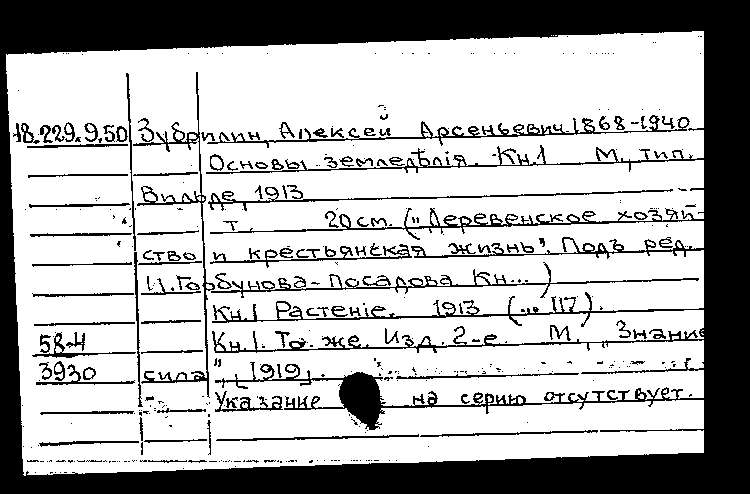 18.229.9.50 Зубрилин, Алексей Арсеньевич. 1868-1940
Основы земледѣлія. Кн.1 М., тип.
Вильде, 1913
т. 20 см. („Деревенское хозяй-
ство и крестьянская жизнь". Подъ ред.
И. Горбунова-Посадова. Кн...)
Кн.1 Растеніе. 1913 (... 117).
58-4 Кн.1. То же. Изд. 2-е. М., „Знание
3930 сила", [1919].
Указание на серию отсутствует.